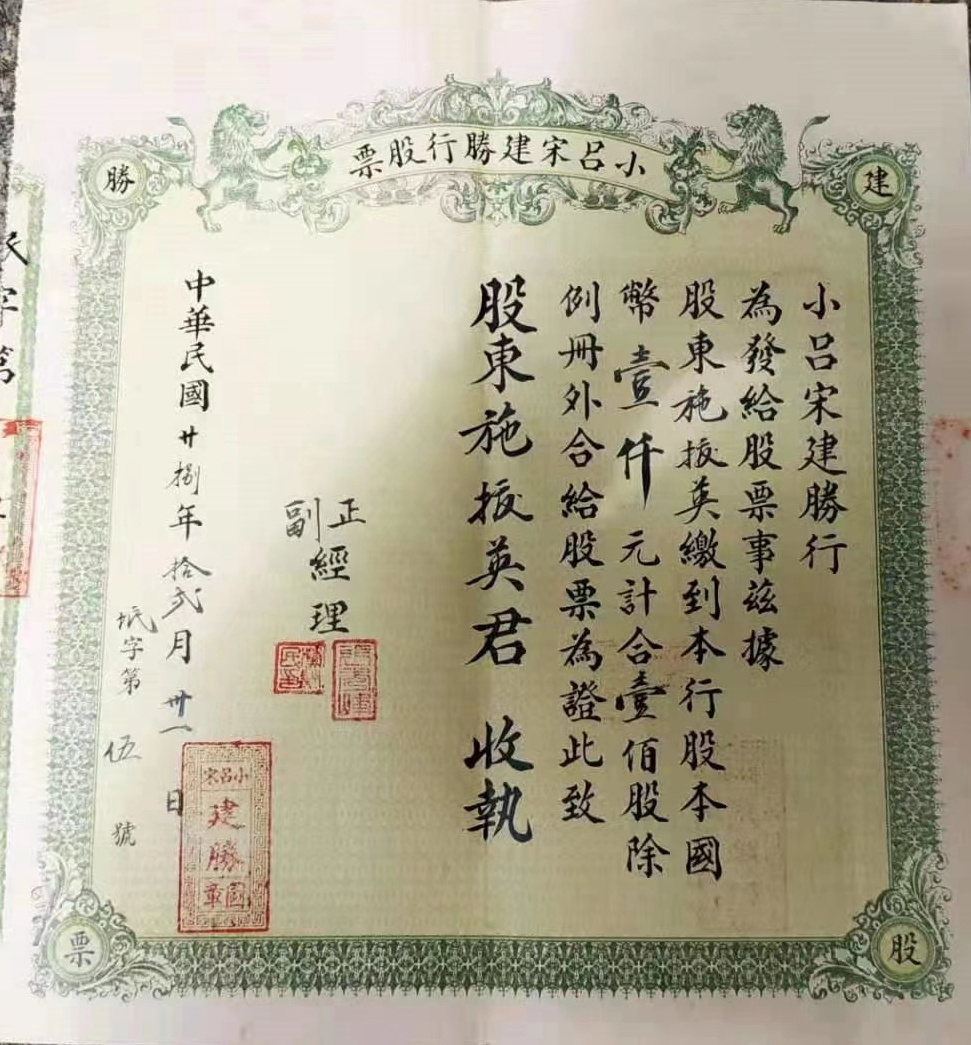 小呂宋建勝行股票
建
勝
股
票
小呂宋建勝行
為發給股票事茲據
股東施振英繳到本行股本國
幣壹仟元計合壹佰股除
例冊外合給股票為證此致
股東施振英君 收執
正副經理
中華民國廿捌年拾弍月卅一日
字第伍號
小呂宋
建勝
圖章
字第